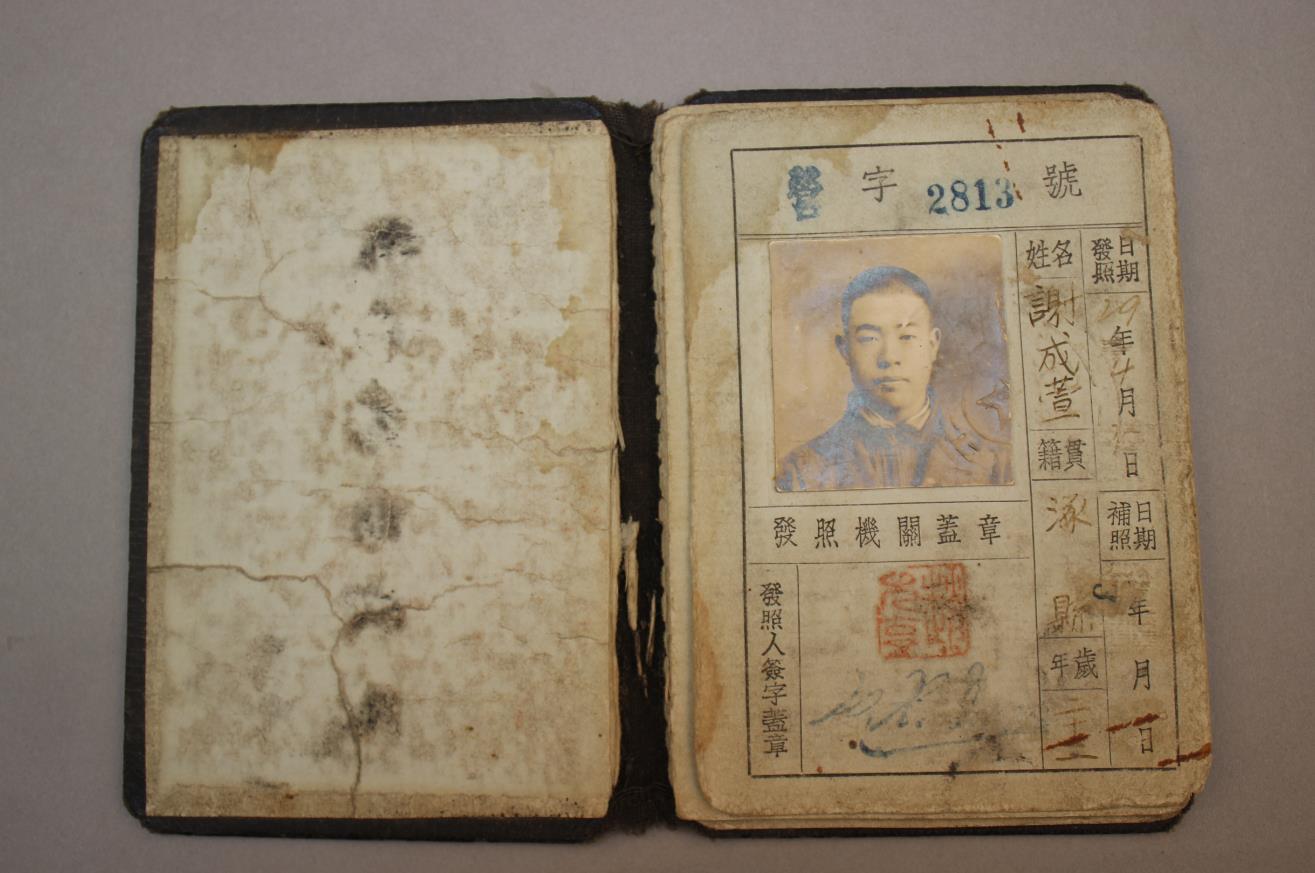 營字2813號
發照日期
29年4月 日
補照日期
年 月 日
姓名
謝成萱
籍貫
涿縣
年歲
二十三
發照機關蓋章
發照人簽字蓋章